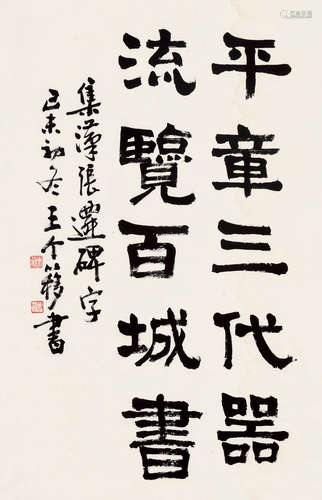 平章三代器
流覽百城書
集漢張遷碑字
己未初冬王个簃書